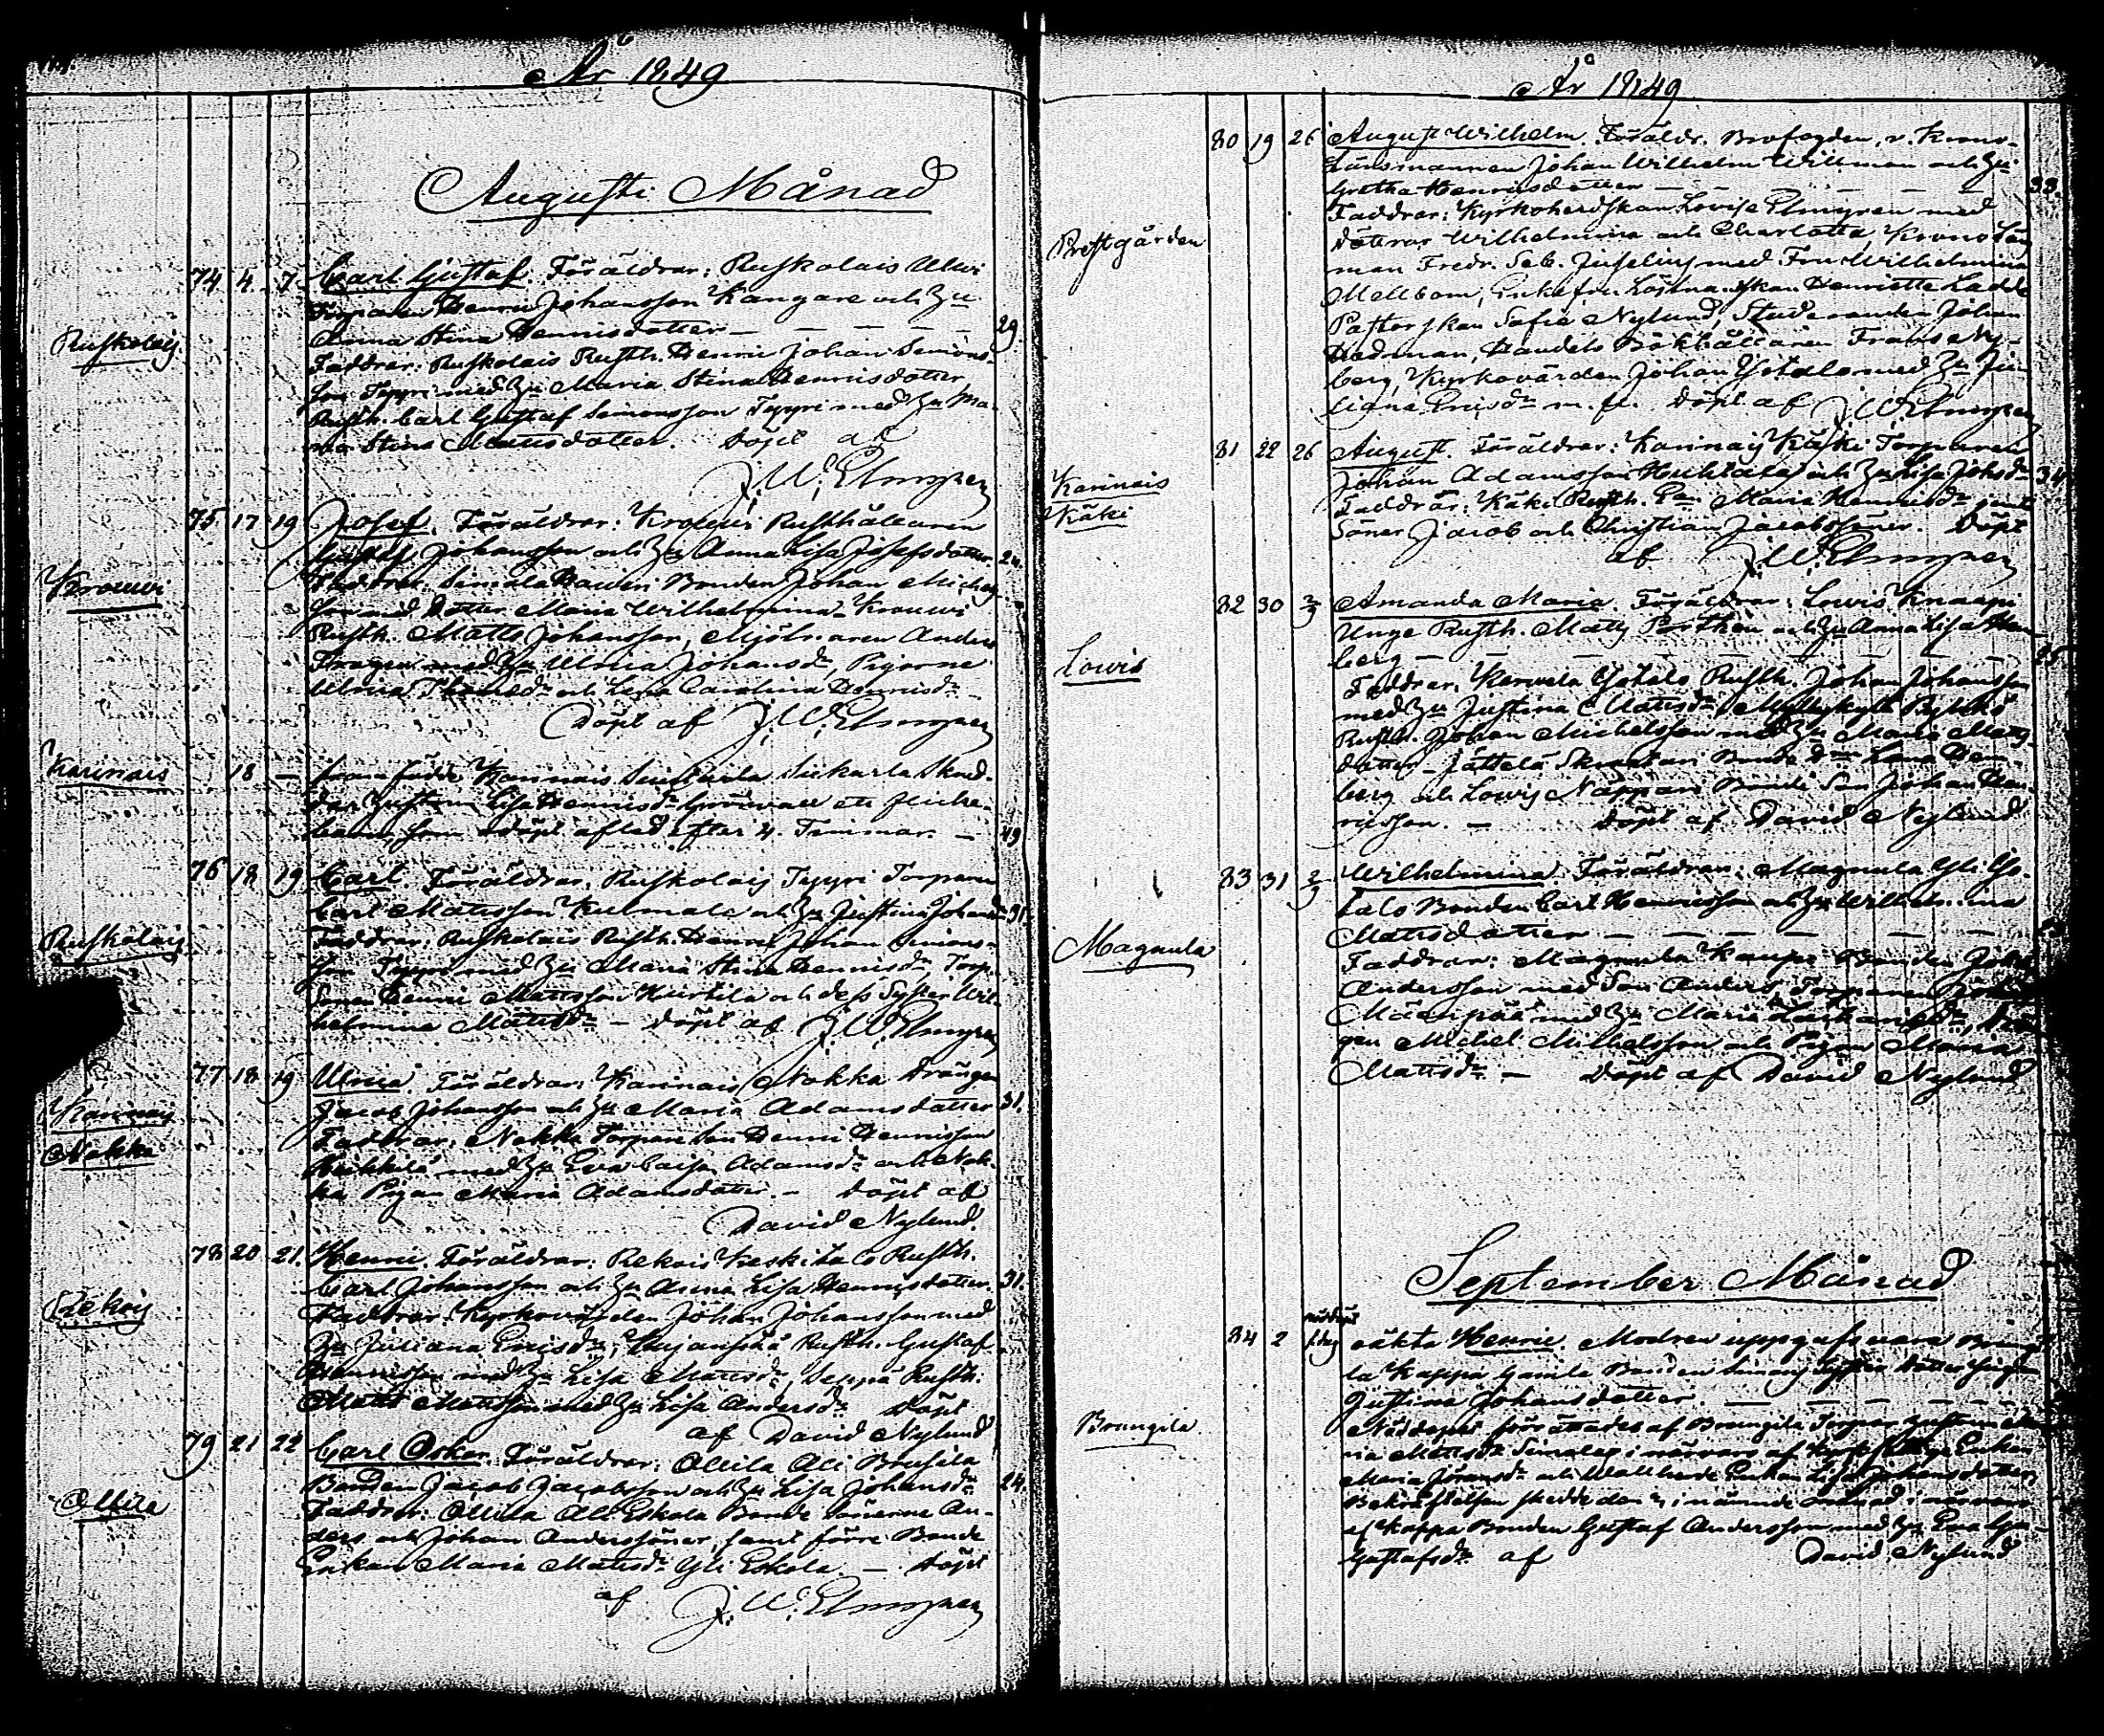 År 1849
Augusti Månad
Ruskolais
74 4 7 Carl Gustaf. Föräldrar: Ruskolais Ulwi
Torparen Henric Johansson Kangare och Hu
Anna Stina Henricsdotter — — — — 29
Faddrar: Ruskolais Rusth. Henric Johan Simons-
son Tyyri med Hu Maria Stina Henricsdotter
Rusth. Carl Gustaf Simonsson Tyyri med Hu Ma-
ria Stina Mattsdotter. Döpt af
J. W. Elmgren
Krouwi
75 17 19 Josef. Föräldrar: Krouwi Rusthållaren
Gustaf Johansson och Hu Anna Lisa Josefsdotter.
Faddrar: Simala Bonden Johan Michels-
son med Dotter Maria Wilhelmina, Krouwi
Rusth. Matts Johansson, Mjölnaren Anders
med Hu Ulrica Johansdr, Pigorna
Ulrica och Lisa Carolina Henricsdr —
Döpt af J. W. Elmgren
Karinais
18 — framfödde Karinais Siukarla
Hustrun Lisa Henricsdr ett flicke-
barn, som odöpt afled efter 4 Timmar. — 49
Ruskolais
76 18 19 Carl. Föräldrar: Ruskolais Tyyri Torparen
Carl Mattsson Kulmala och Hu Justina Johansdr 31.
Faddrar: Ruskolais Rusth. Henric Johan Simons-
son Tyyri med Hu Maria Stina Henricsdr, Torp.
Sonen Henric Mattsson Huertila och dess Syster Wil-
helmina Mattsdr — Döpt af J. W. Elmgren
Karinais
Nokka
77 18 19 Ulrica. Föräldrar: Karinais Nokka Drängen
Jacob Johansson och Hu Maria Adamsdotter 31.
Faddrar: Nokka Torpare Son Henric Henricsson
Heikkilä med Hu Eva Caisa Adamsdr och Nok-
ka Pigan Maria Adamsdotter. — Döpt af
David Nylund.
Rekois
78 20 21. Henric. Föräldrar: Rekois Keskitalo Rusth.
Carl Johansson och Hu Anna Lisa Henricsdotter. 31.
Faddrar: Kyrkovärden Johan Johansson med
Hu Juliana Ericsdr; Rusth. Gustaf
Henricsson med Hu Lisa Mattsdr, Seppä Rusth.
Matts Mattsson med Hu Lisa Andersdr Döpt
af David Nylund
Ollila
79 21 22 Carl Oskar. Föräldrar: Ollila Ali Brusila
Bonden Jacob Jacobsson och Hu Lisa Johansdr 24.
Faddrar: Ollila Ali Eskola Bonde Sönerna An-
ders och Johan Anderssöner, samt förre Bonde
Enkan Maria Mattsdr Yli Eskola. — Döpt
af J. W. Elmgren
År 1849
Prestgården
80 19 26 August Wilhelm. Föräldr. Brofogden, v. Krono-
Länsmannen Johan Wilhelm Willman och Hu
Gretha Henricsdotter — — — — 33.
Faddrar: Kyrkoherdskan Lovisa Elmgren med
Döttrar Wilhelmina och Charlotta, Krono Läns
man Fredr. Seb. Juselius med Fru Wilhelmina
Mellbom, Enkefru Henriette Ladde
Pastorskan Sofia Nylund, Studeranden Johan
Hedman, Handels Bokhållaren Frans Ny-
berg, Kyrkovärden Johan Ylitalo med Hu Ju-
liana Ericsdr m. fl. Döpt af J. W. Elmgren
Karinais
Käki
81 22 26 August. Föräldrar: Karinais Käki Torparen
Johan Adamsson Huhtala och Hu Lisa Johsdr 34
Faddrar: Käki Rusth. Maria Henricsdr samt
Söner Jacob och Christian Jacobssöner. Döpt
af J. W. Elmgren
Lowis
82 30 2/9 Amanda Maria. Föräldrar: Lowis Knaapi
Unge Rusth. Matts och Hu Anna Lisa
berg — — — — 25
Faddrar: Yotalo Rusth. Johan Johansson
med Hu Justina Mattsdr,
Rusth. Johan Michelsson med Hu Maria Matts-
dotter — Jättelä Bonde Dr Lena
berg och Lowis Näppäri Bonde Son Johan Hen-
ricsson. — Döpt af David Nylund
Magnula
83 31 2/9 Wilhelmina. Föräldrar: Magnula Yli Yo-
talo Bonden Carl Henricsson och Hu Wilhelmina
Mattsdotter — — — —
Faddrar: Magnula Kaupi Bonden Johan
Andersson med Son Anders, Torparen
Mäenpää med Hu Maria, Drän-
gen Michel Michelsson och Pigan Maria
Mattsdr. — Döpt af David Nylund
September Månad
Brungila
84 2 nöddöpt s. dag oäkta Henric. Modren uppgafs vara Brungi-
la Kappa Gamle Bonden Dotter
Justina Johansdotter. — — — —
Nöddopet förrättades af Brungila Torpare hustrun Ma-
ria Mattsdr i närvaro af Enkan
Maria Göransdr och Enkan Lisa Johansdotter
Bekräftelsen skedde den i nämnde månad i närvaro
af Kappa Bonden Gustaf Andersson med Hu Eva
Gustafsdr af David Nylund